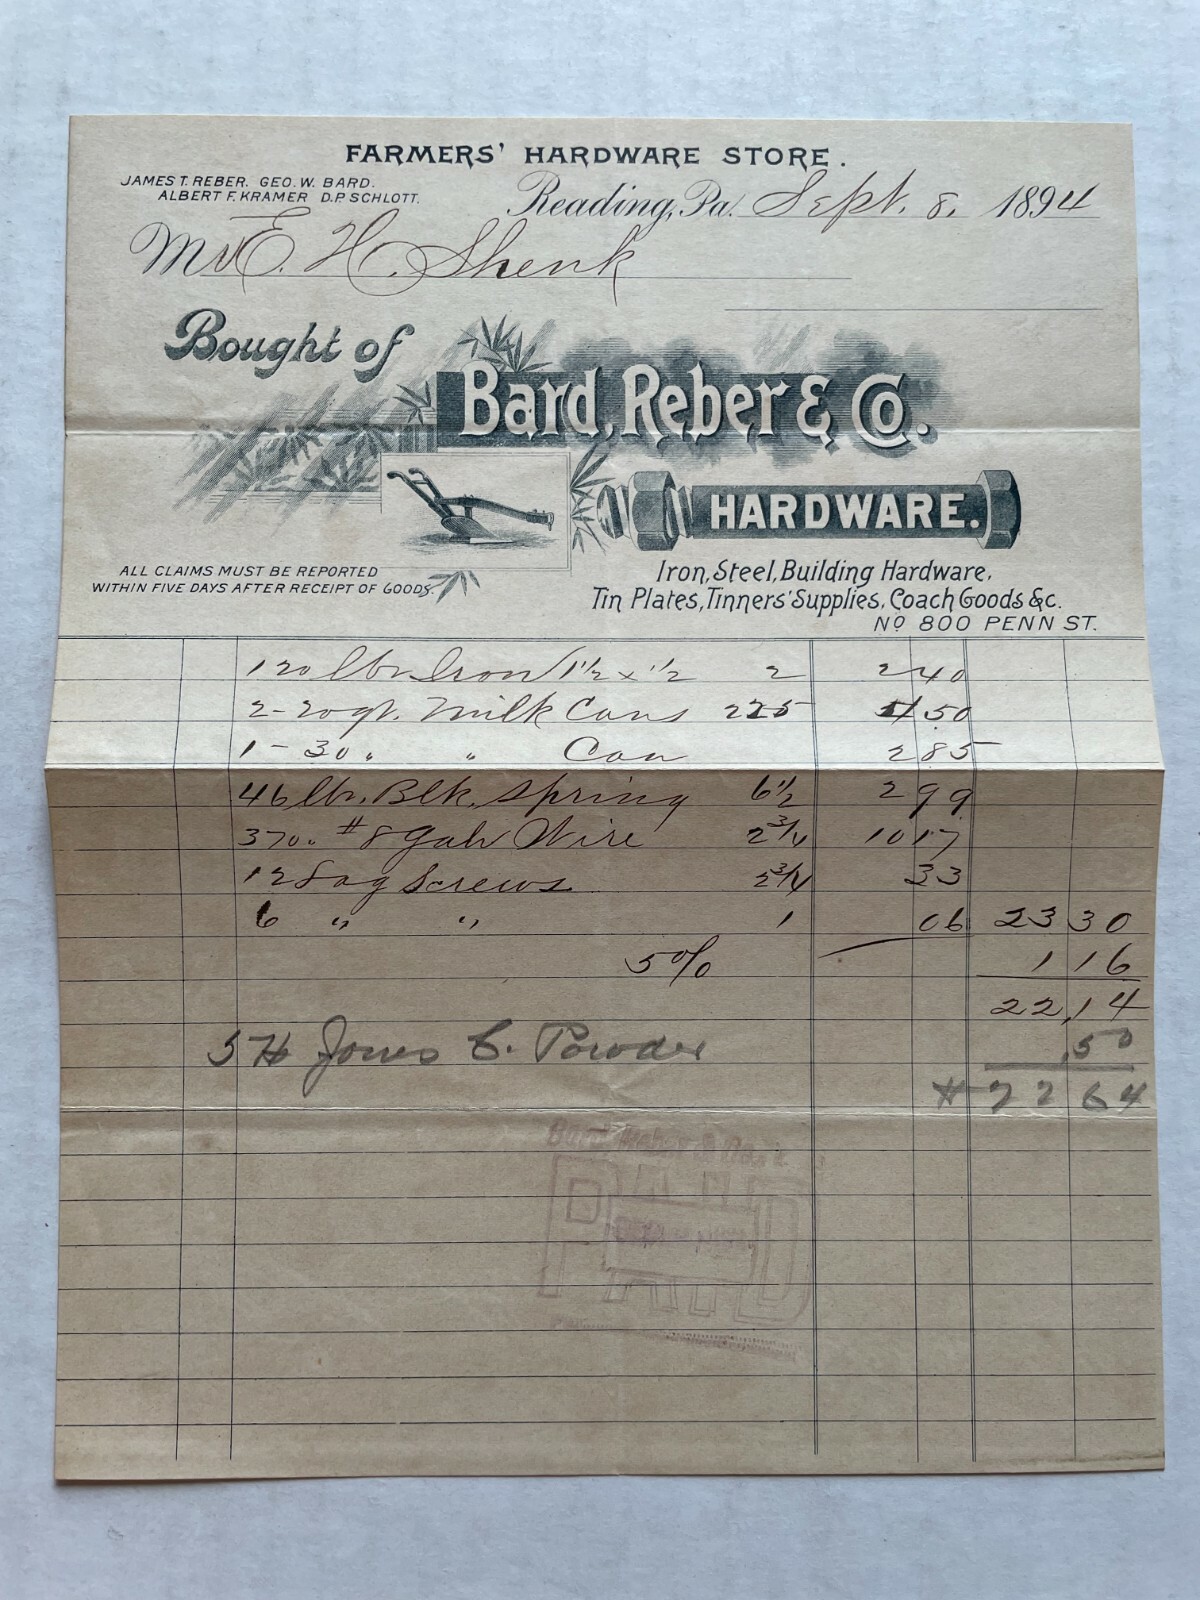 FARMERS' HARDWARE STORE.
JAMES T. REBER. GEO. W. BARD.
ALBERT F. KRAMER D.P. SCHLOTT.
Reading, Pa. Sept. 8. 1894
Mr E. H. Shenk
Bought of
Bard, Reber & Co.
HARDWARE.
ALL CLAIMS MUST BE REPORTED
WITHIN FIVE DAYS AFTER RECEIPT OF GOODS.
Iron, Steel, Building Hardware,
Tin Plates, Tinners' Supplies, Coach Goods &c.
No 800 PENN ST.
120 lbs. Iron 1 1/2 x 1/2 2 2 40
2-20 qt. Milk Cans 225 4 50
1-30 " " Can 2 85
46 lbs. Blk. Spring 6 1/2 2 99
370 " #8 Galv Wire 2 3/4 10 17
12 Lag Screws 2 3/4 33
6 " " 1 06 23 30
5% 1 16
22,14
5 # Jones C. Powder .50
# 22 64
Bard, Reber & Co.
PAID